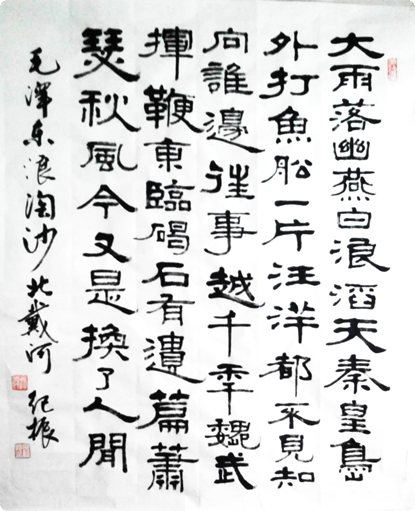 大雨落幽燕白浪滔天秦皇島
外打魚船一片汪洋都不見知
向誰邊往事越千年魏武
揮鞭東臨碣石有遺篇蕭
瑟秋風今又是換了人間
毛澤东浪淘沙北戴河 纪振